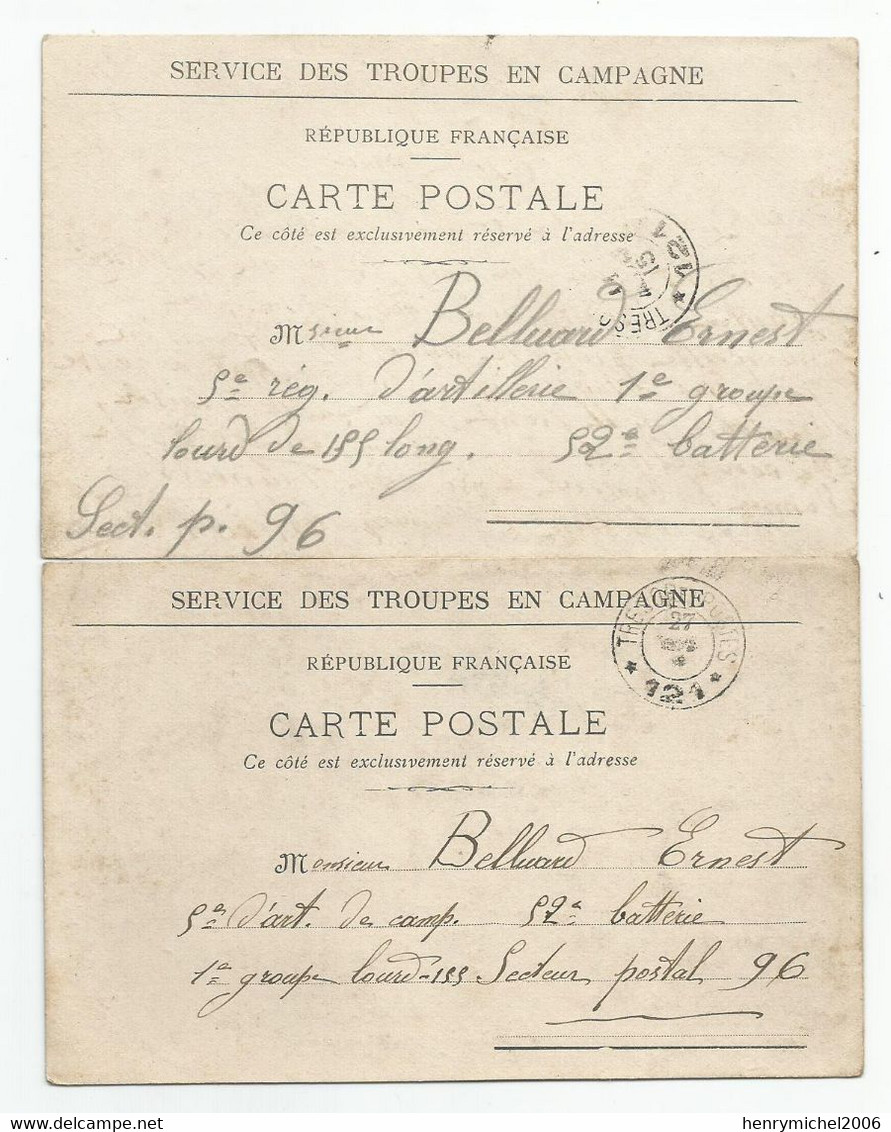 SERVICE DES TROUPES EN CAMPAGNE
RÉPUBLIQUE FRANÇAISE
CARTE POSTALE
Ce côté est exclusivement réservé à l'adresse
121
15
TRESO
Monsieur Belluard Ernest
5e rég. d'artillerie 1e groupe
lourd de 155 long. 52e batterie
Sect. p. 96
SERVICE DES TROUPES EN CAMPAGNE
TRESOR ET POSTES
27
121
RÉPUBLIQUE FRANÇAISE
CARTE POSTALE
Ce côté est exclusivement réservé à l'adresse
Monsieur Belluard Ernest
5e d'art. de camp. 52e batterie
1e groupe lourd-155 Secteur postal 96
delcampe.net
henrymichel2006